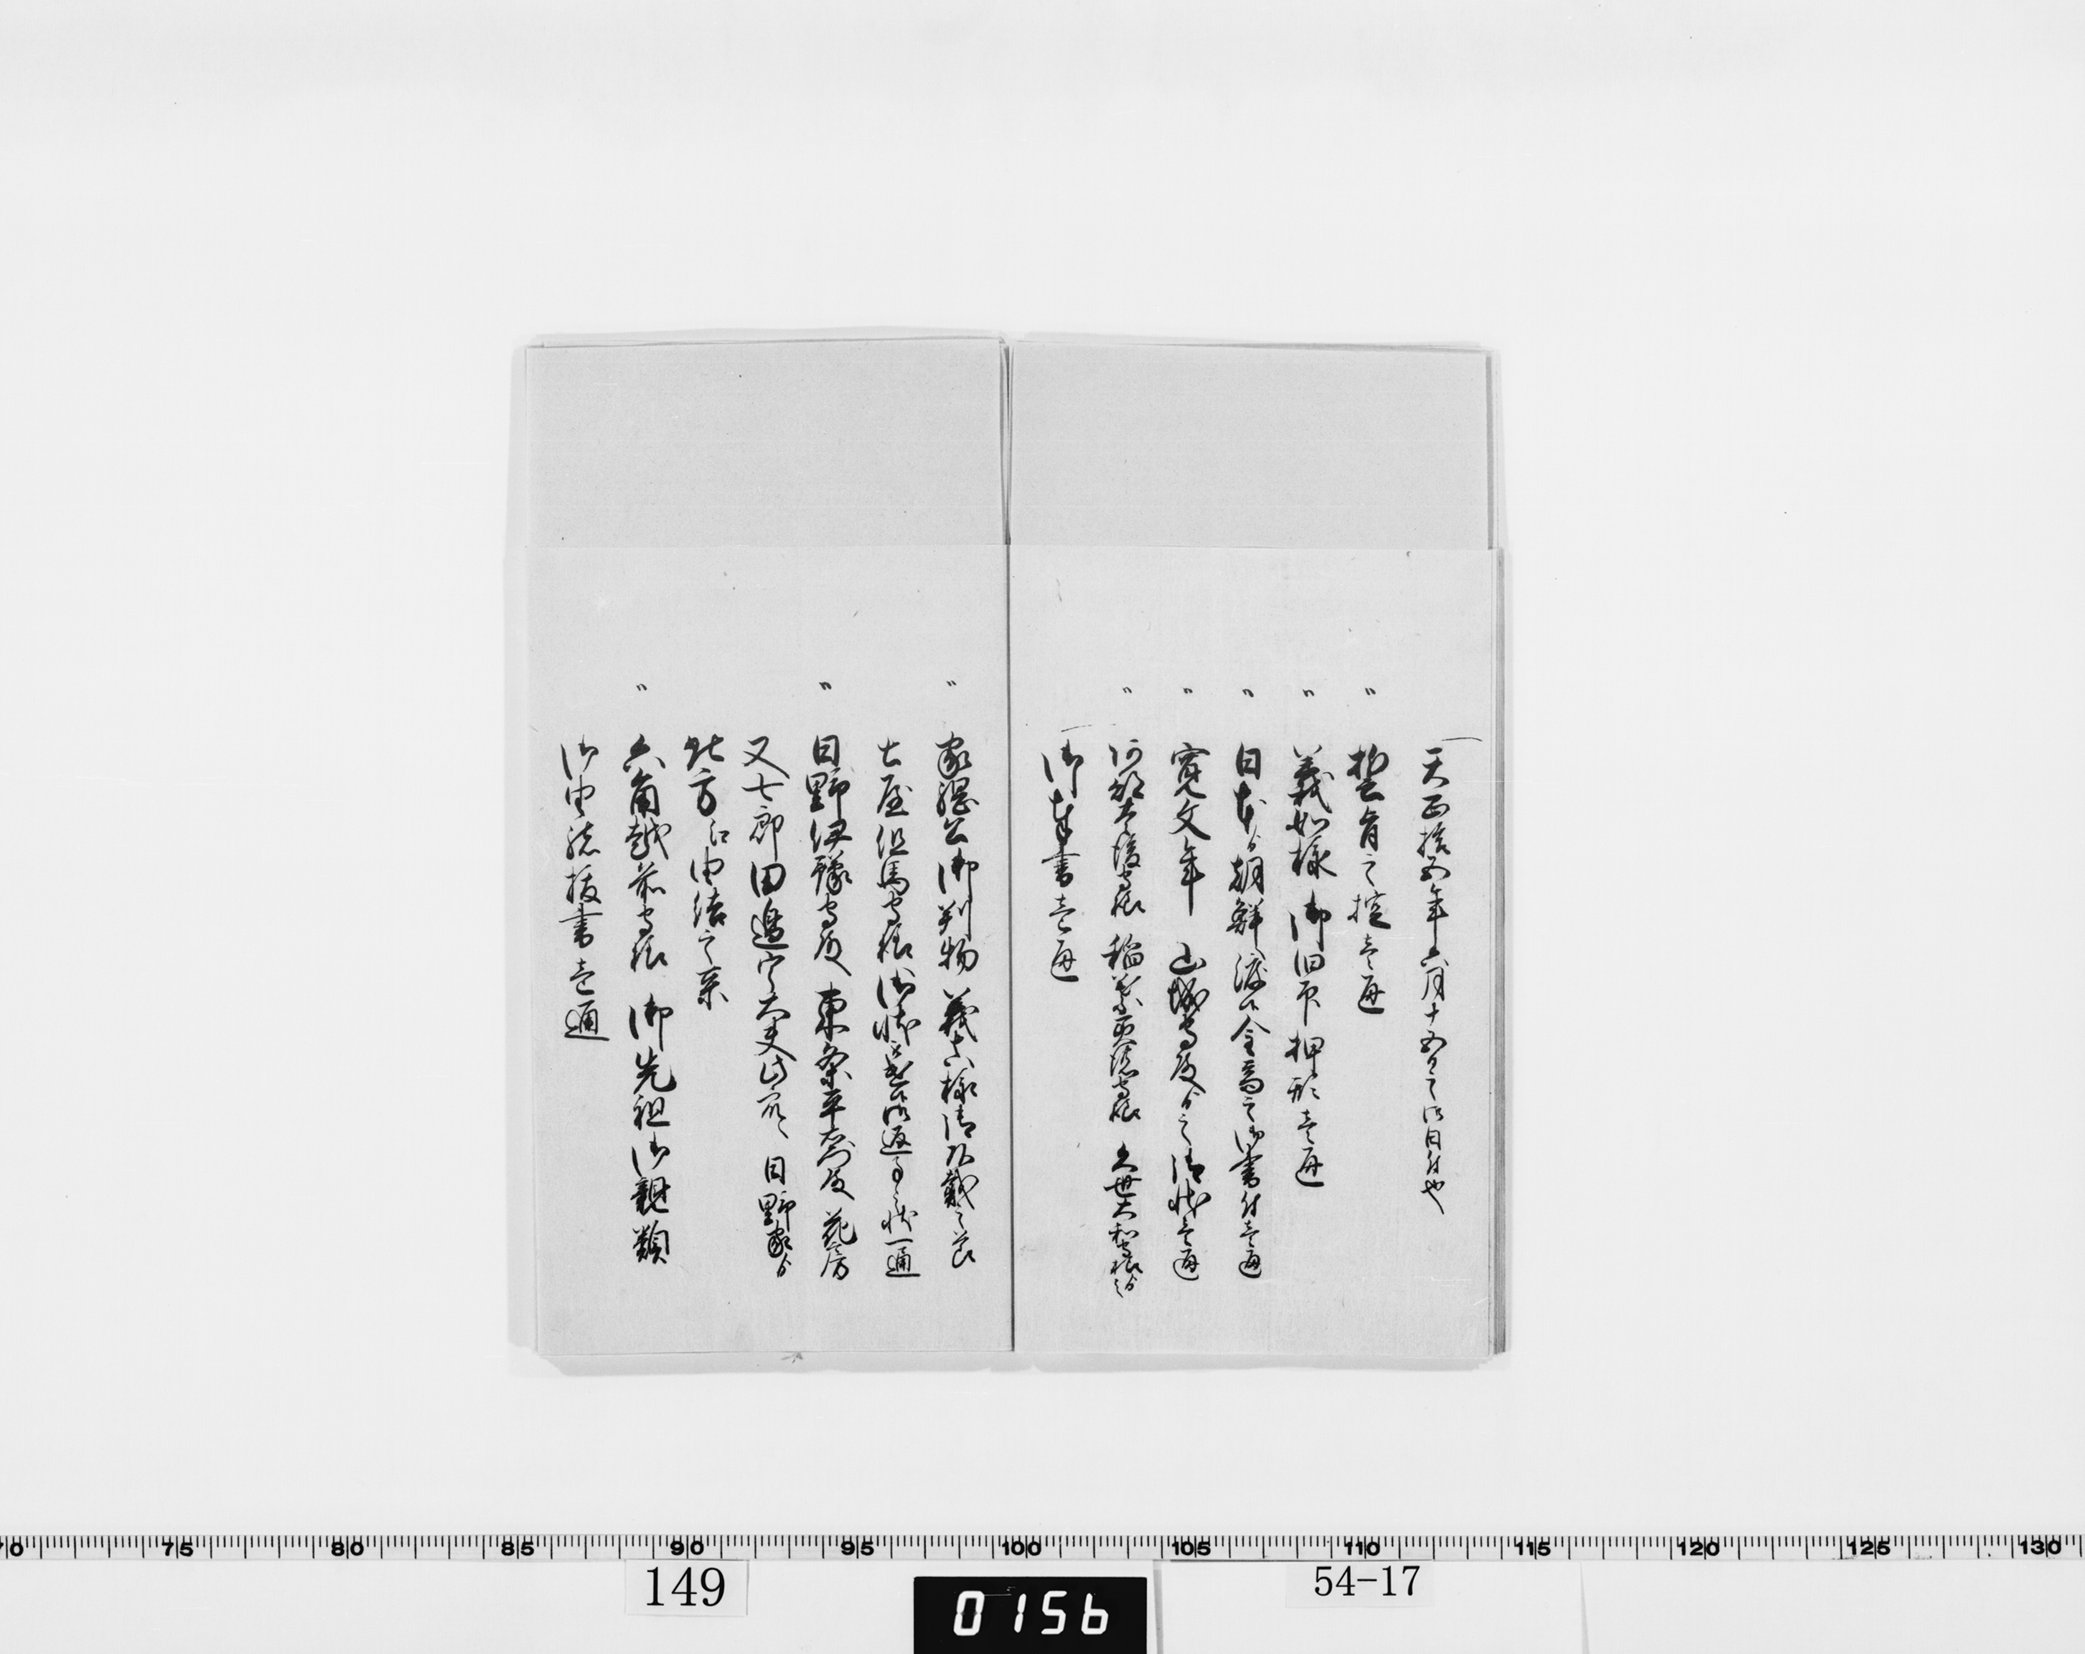 一天正拾五年六月十五日之御日付也
〃 誓旨之控壱通
〃 義如様 御旧印押形壱通
〃 日本ゟ朝鮮江渡候金高之御書付壱通
〃 寛文年 山城守殿ゟ之御状壱通
〃 阿部豊後守様 稲葉美濃守様 久世大和守様ゟ之
御奉書壱通
〃 家綱公御判物 義真様御頂戴之節
土屋但馬守様 御状 御返事之状一通
〃 日野伊豫守殿 東条平左衛門殿 花房
又七郎 田邊
日野家ゟ
此方江由緒之亲
〃 六角越前守様 御先祖御親類
御由緒抜書壱通
70 75 80 85 90 95 100 105 110 115 120 125 130
149
0156
54-17